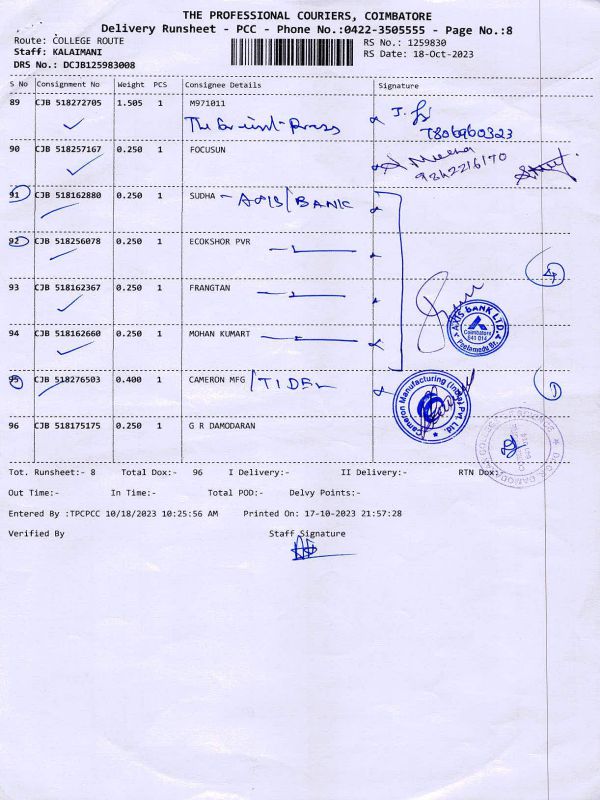 THE PROFESSIONAL COURIERS, COIMBATORE
Delivery Runsheet - PCC - Phone No.:0422-3505555 - Page No.:8
Route: COLLEGE ROUTE RS No.: 1259830
Staff: KALAIMANI RS Date: 18-Oct-2023
DRS No.: DCJB125983008
S No Consignment No Weight PCS Consignee Details Signature
89 CJB 518272705 1.505 1 M971011
7806960323
90 CJB 518257167 0.250 1 FOCUSUN Meena
9342216170
91 CJB 518162880 0.250 1 SUDHA - AXIS/BANK
92 CJB 518256078 0.250 1 ECOKSHOR PVR
4
93 CJB 518162367 0.250 1 FRANGTAN
AXIS BANK LTD.
Coimbatore
641 014
Peelamedu Br.
94 CJB 518162660 0.250 1 MOHAN KUMART
95 CJB 518276503 0.400 1 CAMERON MFG /TIDEL
1
Cameron Manufacturing (India) Pvt. Ltd.
96 CJB 518175175 0.250 1 G R DAMODARAN
Tot. Runsheet:- 8 Total Dox:- 96 I Delivery:- II Delivery:- RTN Dox:
Out Time:- In Time:- Total POD:- Delvy Points:-
Entered By :TPCPCC 10/18/2023 10:25:56 AM Printed On: 17-10-2023 21:57:28
Verified By Staff Signature